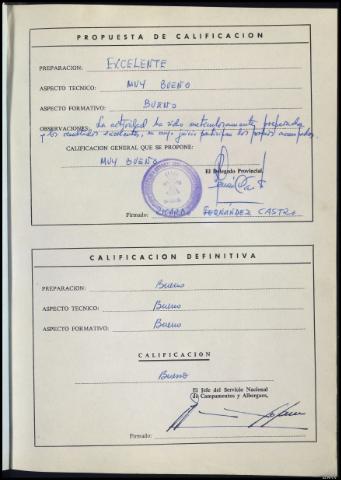 PROPUESTA DE CALIFICACION
PREPARACION: EXCELENTE
ASPECTO TECNICO: MUY BUENO
ASPECTO FORMATIVO: BUENO
OBSERVACIONES: La actividad ha sido meticulosamente preparada
y los resultados excelentes,
CALIFICACION GENERAL QUE SE PROPONE:
MUY BUENO
El Delegado Provincial,
Firmado: RICARDO FERNÁNDEZ CASTRO
CALIFICACION DEFINITIVA
PREPARACION: Bueno
ASPECTO TECNICO: Bueno
ASPECTO FORMATIVO: Bueno
CALIFICACION
Bueno
El Jefe del Servicio Nacional
de Campamentos y Albergues,
Firmado: